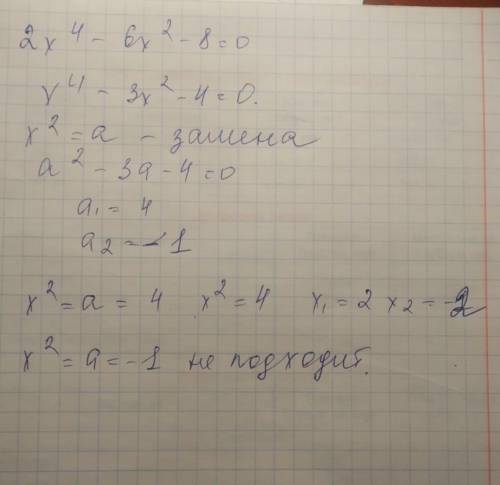 2x⁴ - 6x² - 8 = 0
x⁴ - 3x² - 4 = 0.
x² = a - замена
a² - 3a - 4 = 0
a₁ = 4
a₂ = -1
x² = a = 4 x² = 4 x₁ = 2 x₂ = -2
x² = a = -1 не подходит.